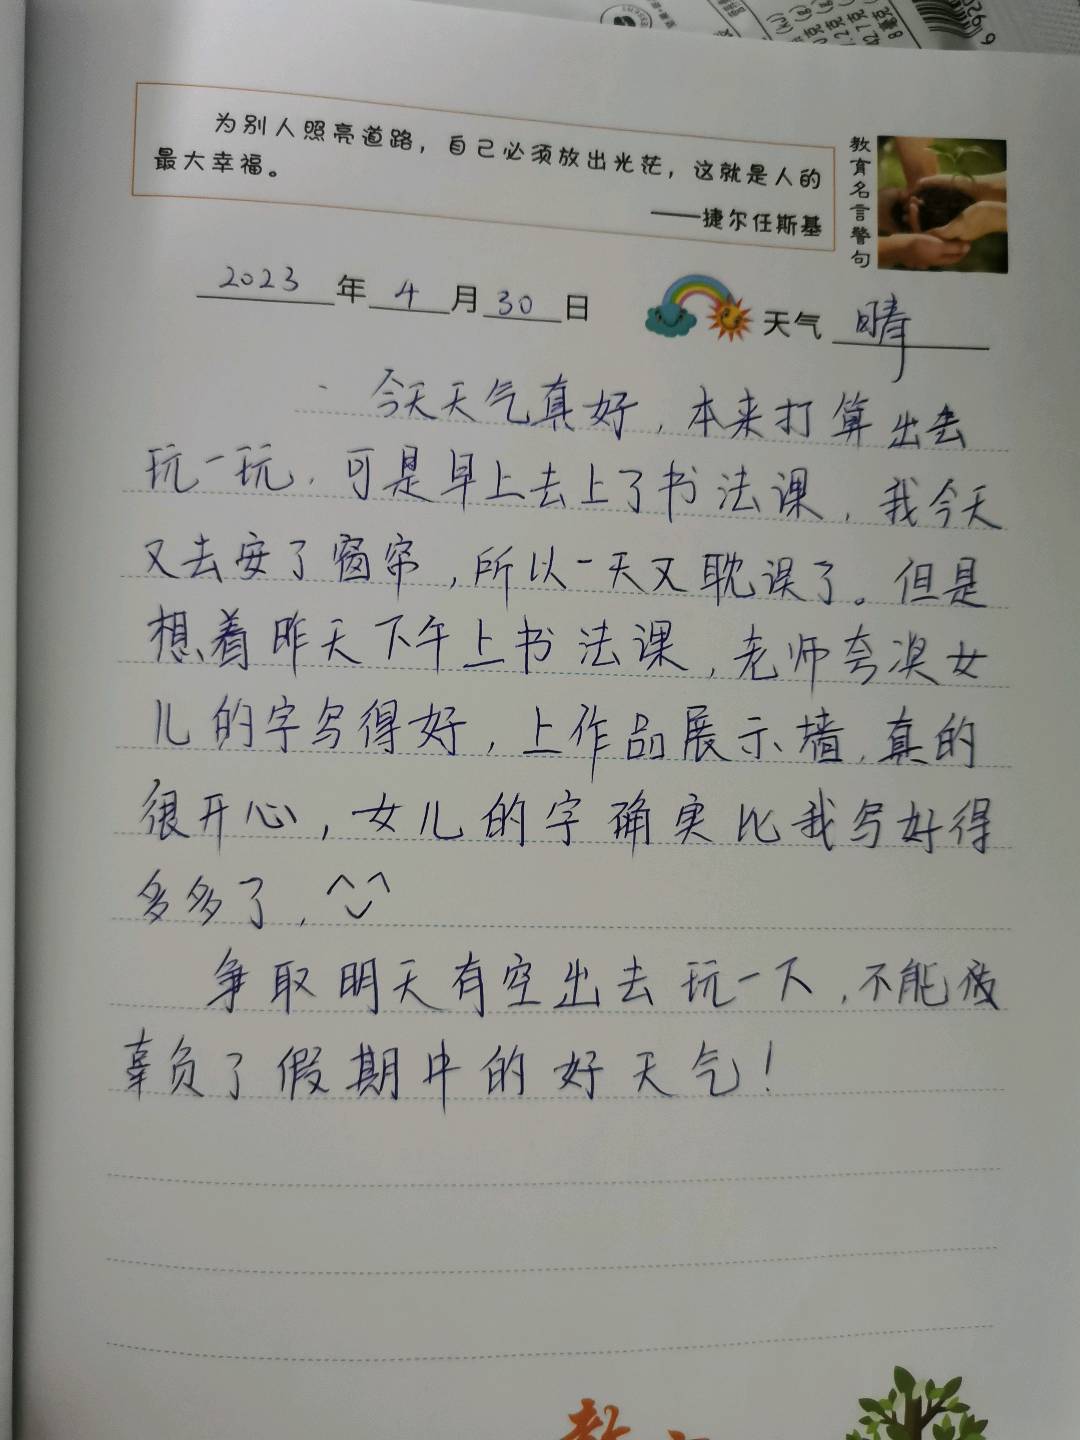 为别人照亮道路，自己必须放出光茫，这就是人的
最大幸福。
——捷尔任斯基
教育名言警句
2023年4月30日 天气 晴
今天天气真好，本来打算出去
玩一玩，可是早上去上了书法课，我今天
又去安了窗帘，所以一天又耽误了。但是
想着昨天下午上书法课，老师夸奖女
儿的字写得好，上作品展示墙，真的
很开心，女儿的字确实比我写好得
多多了，
争取明天有空出去玩一下，不能被
辜负了假期中的好天气！